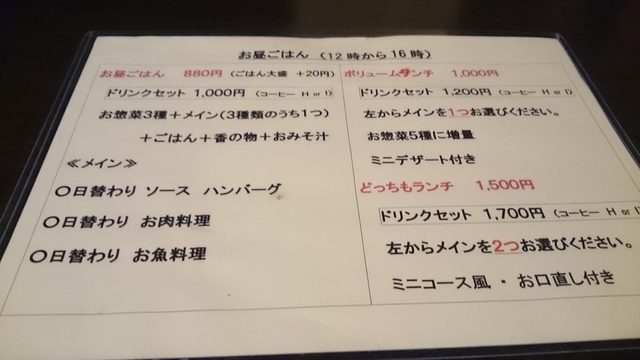 お昼ごはん (12時から16時)
お昼ごはん 880円 (ごはん大盛 +20円)
ドリンクセット 1,000円 (コーヒー H or I)
お惣菜3種+メイン(3種類のうち1つ)
+ごはん+香の物+おみそ汁
≪メイン≫
〇日替わり ソース ハンバーグ
〇日替わり お肉料理
〇日替わり お魚料理
ボリュームランチ 1,000円
ドリンクセット 1,200円 (コーヒー H or I)
左からメインを1つお選びください。
お惣菜5種に増量
ミニデザート付き
どっちもランチ 1,500円
ドリンクセット 1,700円 (コーヒー H or I)
左からメインを2つお選びください。
ミニコース風・お口直し付き